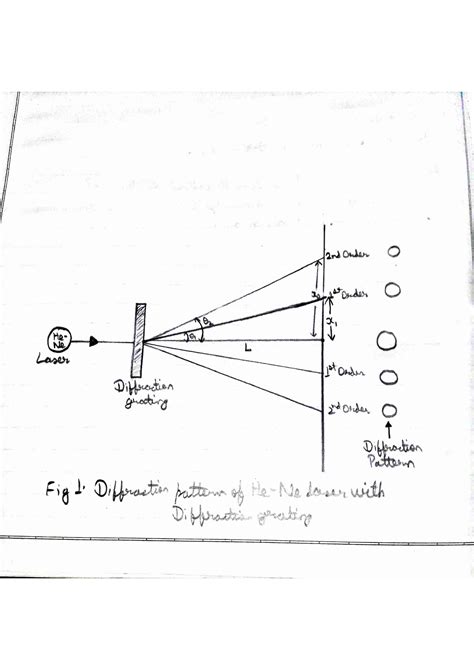 2nd Order
1st Order
x₂
x₁
θ₂
θ₁
He-
Ne
Laser
L
1st Order
2nd Order
Diffraction
grating
Diffraction
Pattern
Fig 1: Diffraction pattern of He-Ne laser with
Diffraction grating